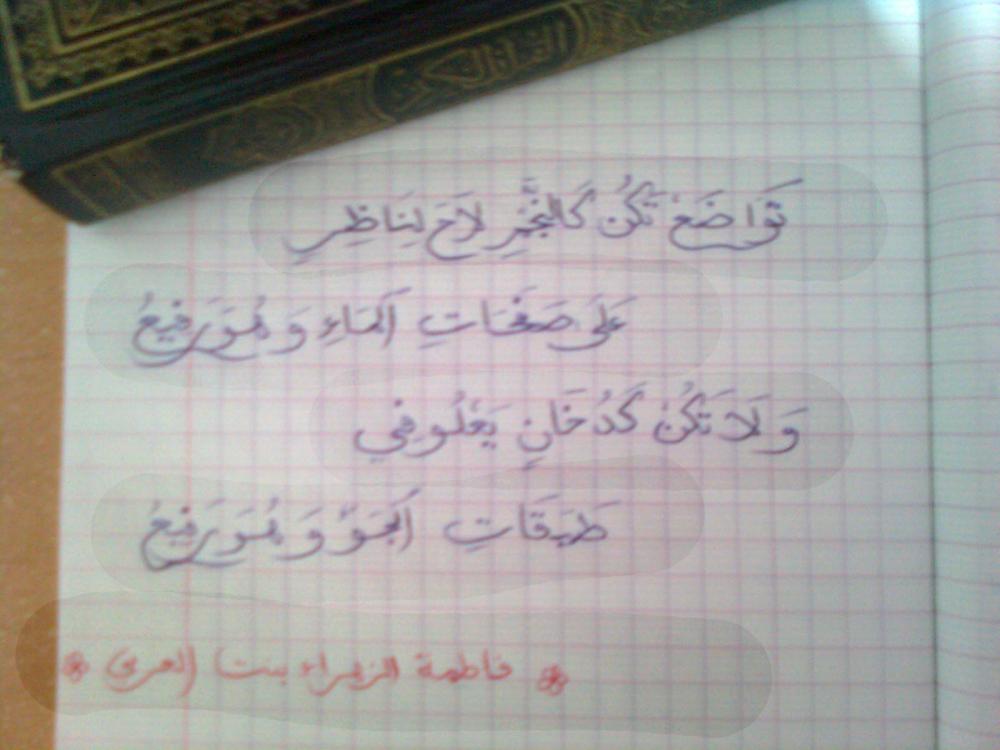 تَوَاضَعْ تَكُنْ كَالنَّجْمِ لَاحَ لِنَاظِرٍ
عَلَى صَفَحَاتِ الْمَاءِ وَهُوَ رَفِيعُ
وَلَا تَكُنْ كَدُخَانٍ يَعْلُو فِي
طَبَقَاتِ الْجَوِّ وَهُوَ رَفِيعُ
* فاطمة الزهراء بنت العربي *